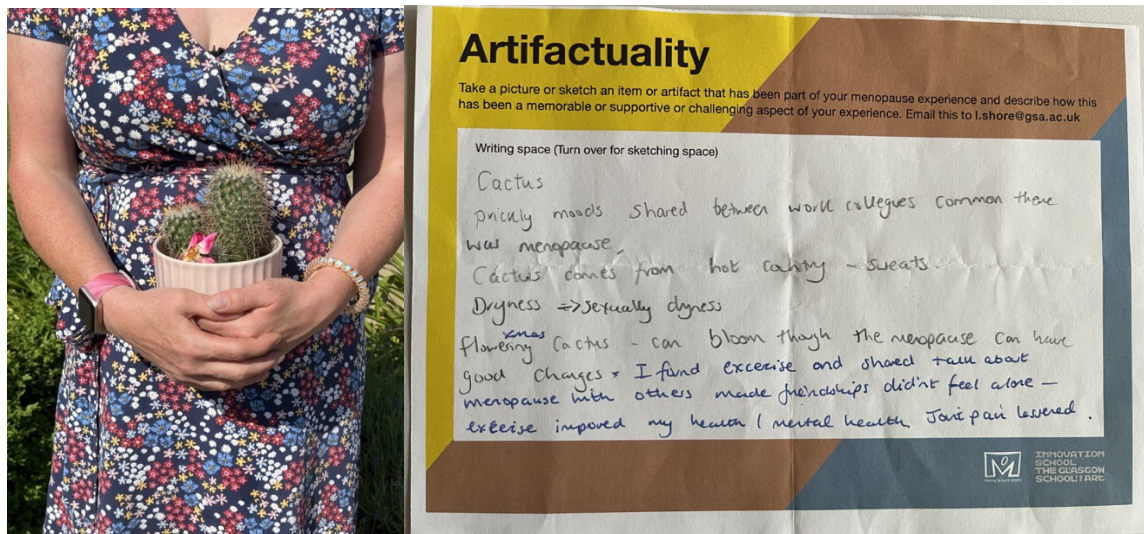 Artifactuality
Take a picture or sketch an item or artifact that has been part of your menopause experience and describe how this
has been a memorable or supportive or challenging aspect of your experience. Email this to l.shore@gsa.ac.uk
Writing space (Turn over for sketching space)
Cactus
prickly moods shared between work collegues common there
was menopause,
Cactus comes from hot country – sweats.
Dryness => sexually dryness
xmas
flowering Cactus – can bloom though the menopause can have
good changes * I found excerise and shared talk about
menopause with others made friendships didn't feel alone –
exerise improved my health / mental health. Joint pain lessered.
INNOVATION
SCHOOL
THE GLASGOW
SCHOOL:ARŁ